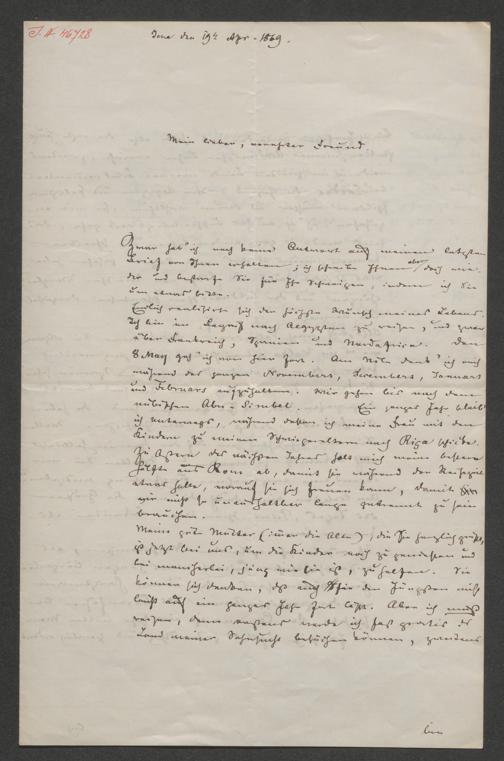 J. N. 46728
Jena den 19t Apr. 1869.
Mein lieber, verehrter Freund.
Zwar hab' ich noch keine Antwort auf meinen letzten
Brief von Ihnen erhalten; ich schreibe Ihnen aber doch wie-
der und bestrafe Sie für Ihr Schweigen, indem ich Sie
um etwas bitte.
Endlich realisirt sich der höchste Wunsch meines Lebens.
Ich bin im Begriff nach Aegypten zu reisen, und zwar
über Frankreich, Spanien und Nordafrica. Den
8 May geh' ich von hier fort. Am Nile denk' ich mich
während des ganzen Novembers, Decembers, Januars
und Februars aufzuhalten. Wir gehen bis nach dem
nubischen Abu-Simbel. Ein ganzes Jahr bleib'
ich unterwegs, während dessen ich meine Frau mit den
Kindern zu meinen Schwiegereltern nach Riga schicke.
Zu Ostern des nächsten Jahres holt mich meine bessere
Hälfte aus Rom ab, damit sie während der
etwas habe, worauf sie sich freuen kann, damit
wir nicht so unerhört lange getrennt zu sein
brauchen.
Meine gute Mutter (immer die Alte), die Sie herzlich grüßt,
ist jetzt bei uns, um die Kinder noch zu genießen und
bei mancherlei, jung wie sie ist, zu helfen. Sie
können sich denken, daß auch sie den Jüngsten nicht
leicht auf ein ganzes Jahr fort läßt. Aber ich muß
reisen, denn erstens werde ich fast gratis das
Land meiner Sehnsucht besuchen können, zweitens
bin